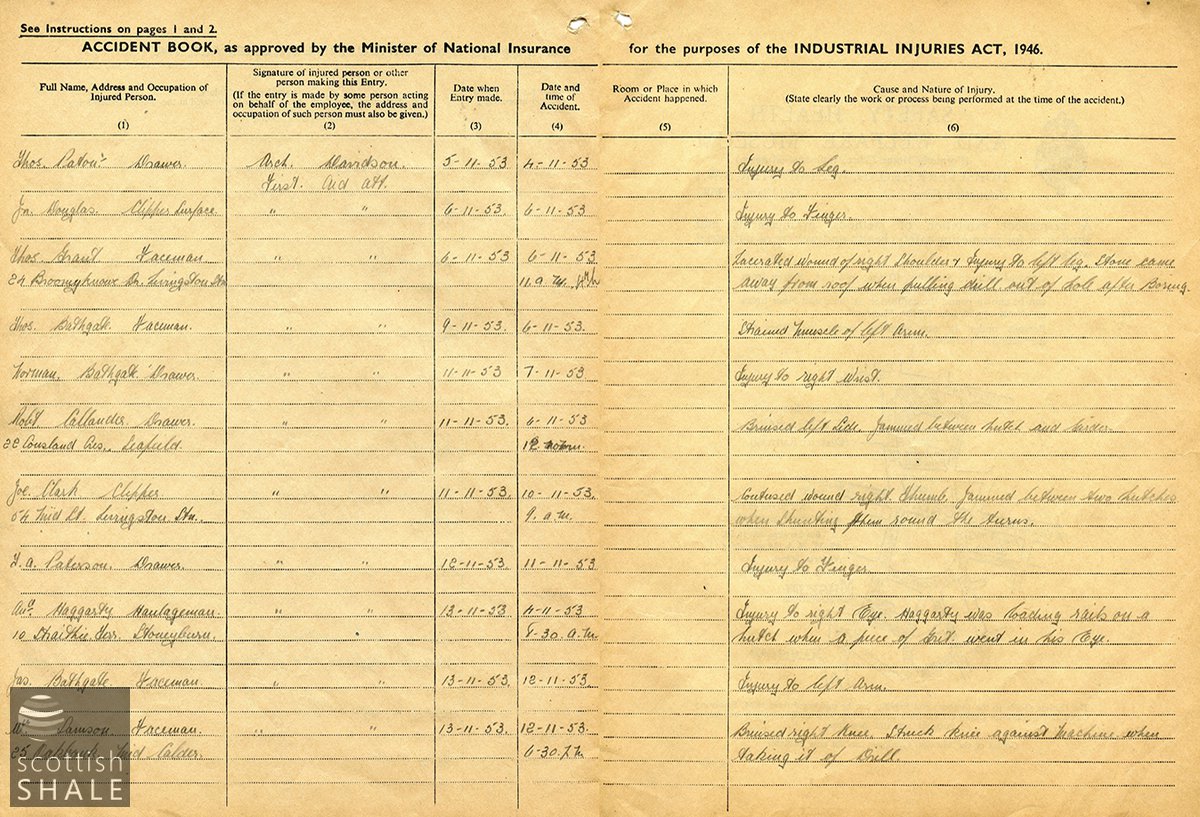 See Instructions on pages 1 and 2.
ACCIDENT BOOK, as approved by the Minister of National Insurance for the purposes of the INDUSTRIAL INJURIES ACT, 1946.
Full Name, Address and Occupation of Injured Person. (1)
Signature of injured person or other person making this Entry. (If the entry is made by some person acting on behalf of the employee, the address and occupation of such person must also be given.) (2)
Date when Entry made. (3)
Date and time of Accident. (4)
Room or Place in which Accident happened. (5)
Cause and Nature of Injury. (State clearly the work or process being performed at the time of the accident.) (6)
Thos. Paton Drawer Arch. Davidson. 5-11-53 4-11-53 Injury to Leg.
First Aid Att.
Jn. Douglas. Clipper Surface. " " 6-11-53. 6-11-53 Injury to Finger.
Thos. Grant Faceman " " 6-11-53. 6-11-53 Lacerated wound of right Shoulder & Injury to left leg. Stone came
24 Broomyknowe Dr. Livingston Stn 11.9. away from roof when pulling drill out of hole after Boring.
Thos. Bathgate. Faceman. " " 9-11-53. 6-11-53. Strained Muscle of left Arm.
Norman. Bathgate Drawer. " " 11-11-53 7-11-53 Injury to right Wrist.
Robt Callander. Drawer. " " 11-11-53. 6-11-53 Bruised left Side. Jammed between hutch and Girder
22 Cousland Cres. Seafield. 12
Joe. Clark Clipper. " " 11-11-53. 10-11-53. Contused wound right Thumb. Jammed between two hutches
54 Mid St. Livingston Stn. 9. a.m. when Shunting them round the turns.
Paterson. Drawer. " " 12-11-53 11-11-53 Injury to Finger
Haggarty Haulageman. " " 13-11-53 4-11-53 Injury to right Eye. Haggarty was loading rails on a
10 Terr. Stoneyburn. 8-30. a.m. hutch when a piece of Grit. went in his Eye.
Jas. Bathgate. Faceman. " " 13-11-53. 12-11-53. Injury to left Arm.
Wm Samson. Faceman. " " 13-11-53. 12-11-53. Bruised right Knee. Struck Knee against Machine when
25 Oakbank Mid Calder. 6-30. P.M. taking it of Drill.
scottish
SHALE